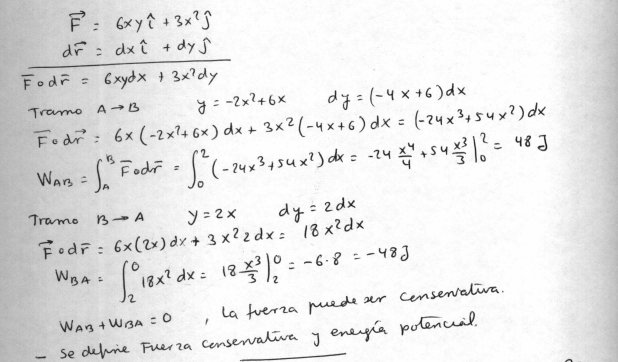 F⃗ = 6xy î + 3x² ĵ
dr⃗ = dx î + dy ĵ
F̄ ∘ dr̄ = 6xydx + 3x²dy
Tramo A→B y = -2x²+6x dy = (-4x+6)dx
F̄∘dr⃗ = 6x(-2x²+6x)dx + 3x²(-4x+6)dx = (-24x³+54x²)dx
W_AB = ∫_A^B F̄∘dr̄ = ∫_0^2 (-24x³+54x²)dx = -24 x⁴/4 + 54 x³/3 |_0^2 = 48 J
Tramo B→A y = 2x dy = 2dx
F⃗∘dr̄ = 6x(2x)dx + 3x² 2dx = 18x²dx
W_BA = ∫_2^0 18x² dx = 18 x³/3 |_2^0 = -6·8 = -48J
W_AB + W_BA = 0 , La fuerza puede ser censervativa.
- Se define Fuerza censervativa y energía potencial.